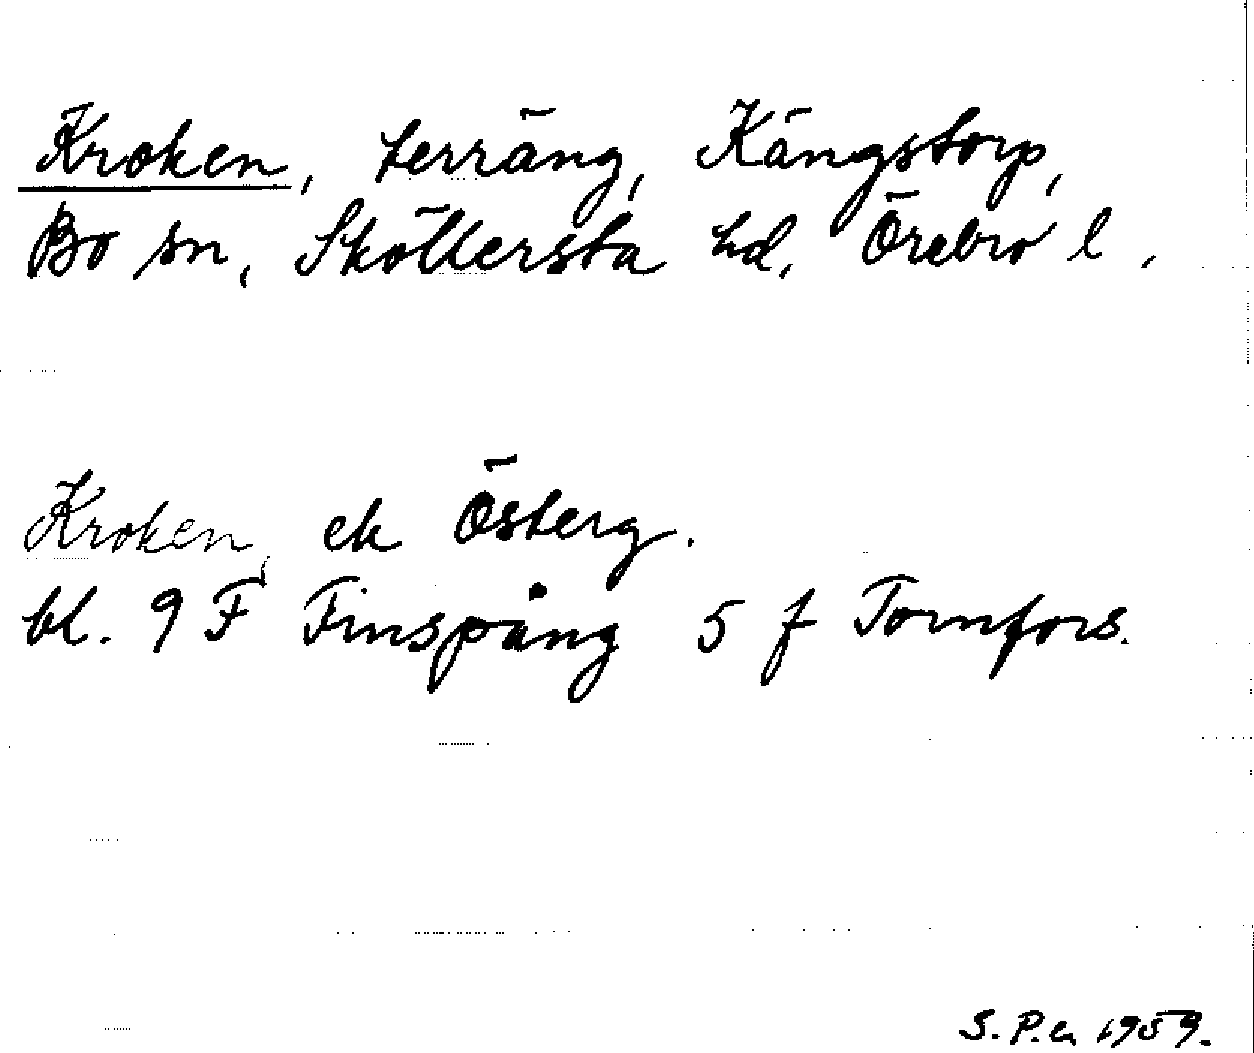 Kroken, terräng, Kängstorp,
Bo sn, Sköllersta hd, Örebro l,
Kroken, ek Österg.
bl. 9 F Finspång 5 f Tornfors.
S.P.n 1959.